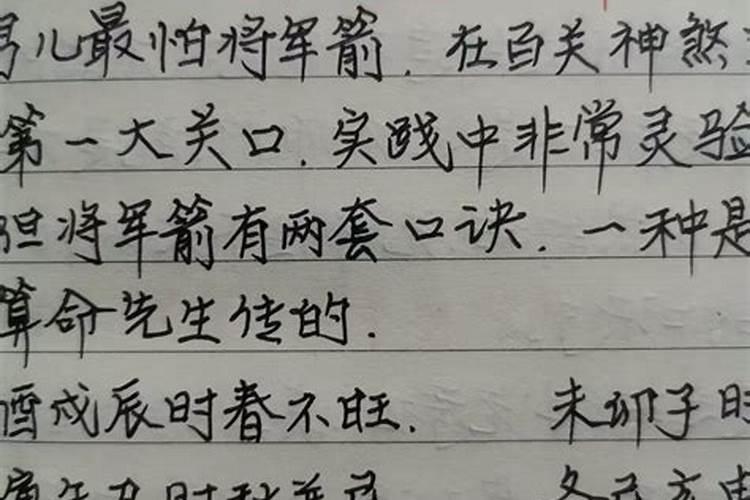 男儿最怕将军箭.在百关神煞
第一大关口.实践中非常灵验
但将军箭有两套口诀.一种是
算命先生传的.
酉戌辰时春不旺. 未卯子时